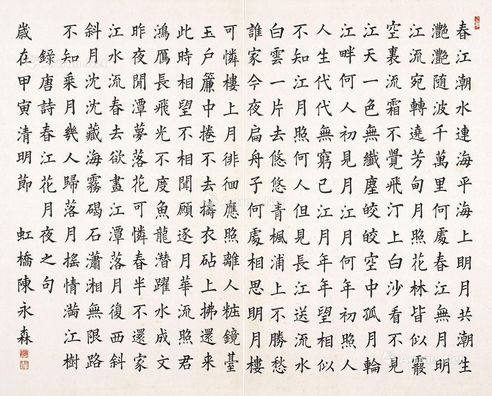 春江潮水連海平海上明月共潮生
灧灧隨波千萬里何處春江無月明
江流宛轉遶芳甸月照花林皆似霰
空裏流霜不覺飛汀上白沙看不見
江天一色無纖塵皎皎空中孤月輪
江畔何人初見月江月何年初照人
人生代代無窮已江月年年望相似
不知江月照何人但見長江送流水
白雲一片去悠悠青楓浦上不勝愁
誰家今夜扁舟子何處相思明月樓
可憐樓上月徘徊應照離人粧鏡臺
玉戶簾中捲不去擣衣砧上拂還来
此時相望不相聞願逐月華流照君
鴻雁長飛光不度魚龍潛躍水成文
昨夜閒潭夢落花可憐春半不還家
江水流春去欲盡江潭落月復西斜
斜月沈沈藏海霧碣石瀟湘無限路
不知乘月幾人歸落月搖情滿江樹
錄唐詩春江花月夜之句
歲在甲寅清明節 虹橋陳永森